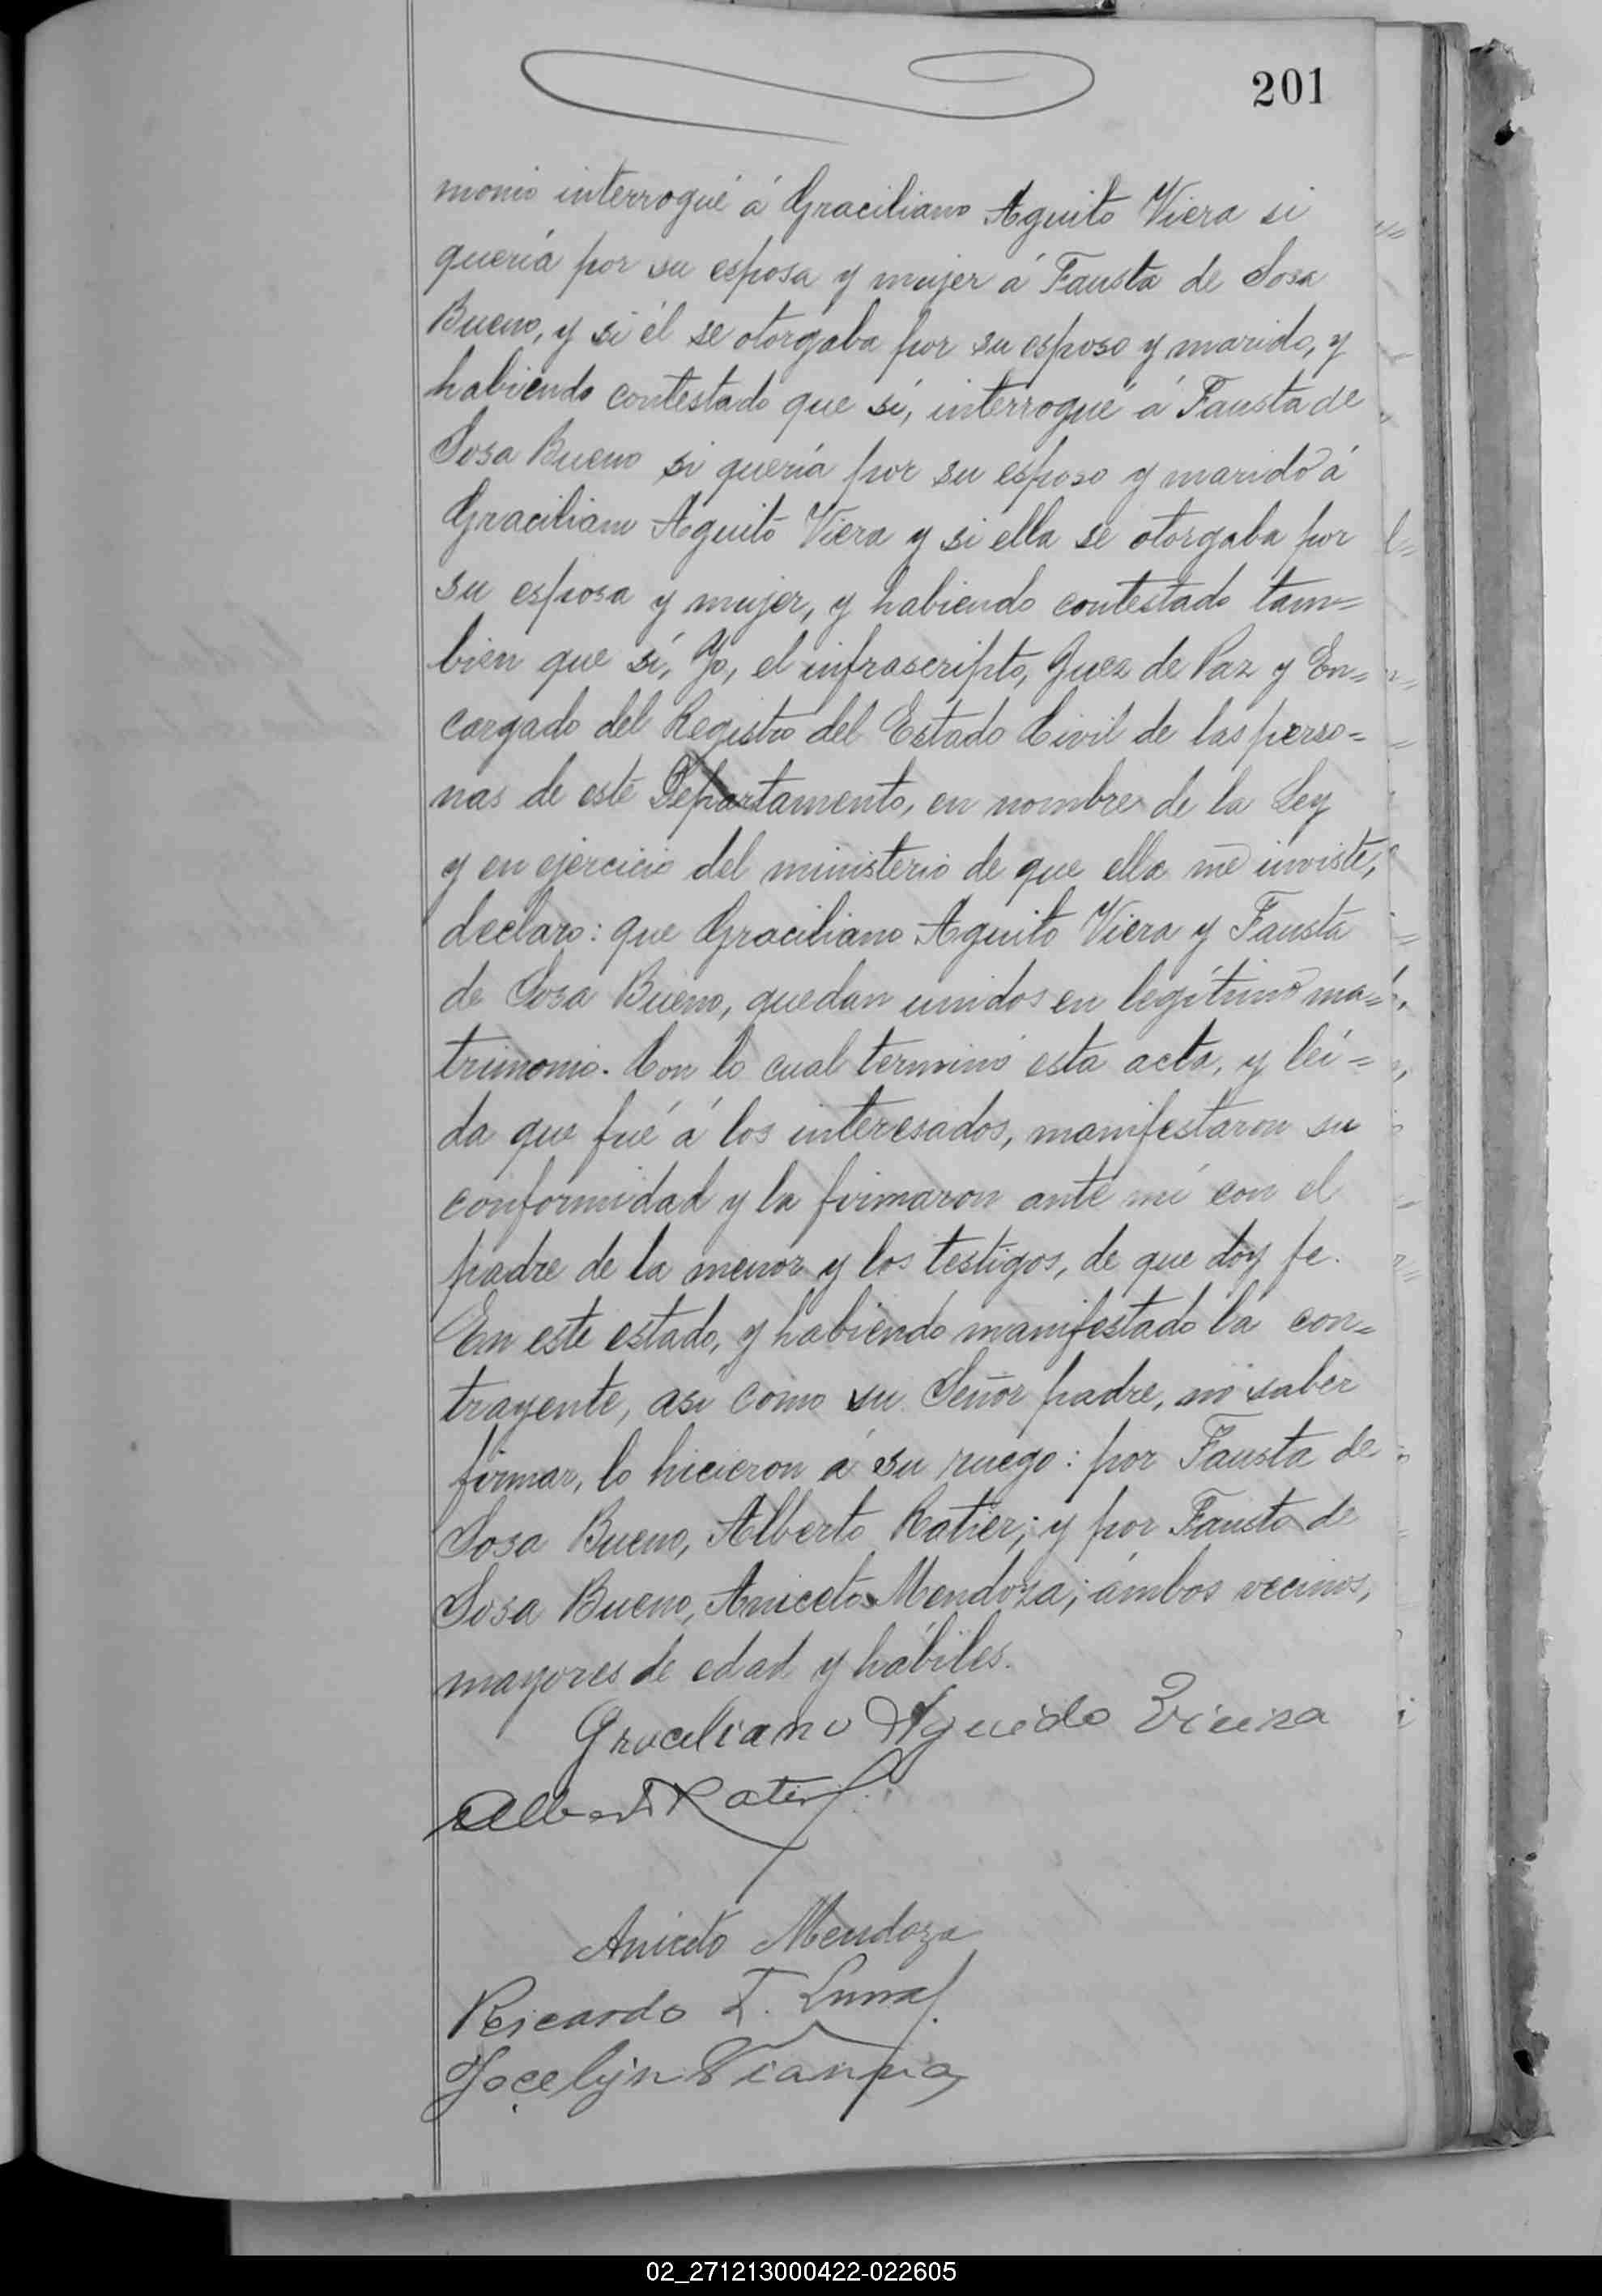 201
monio interrogué á Graciliano Aguito Viera si
quería por su esposa y mujer á Fausta de Sosa
Bueno, y si él se otorgaba por su esposo y marido, y
habiendo contestado que si, interrogué á Fausta de
Sosa Bueno si quería por su esposo y marido á
Graciliano Aguito Viera y si ella se otorgaba por
su esposa y mujer, y habiendo contestado tam=
bien que sí, Yo, el infrascripto, Juez de Paz y En=
cargado del Registro del Estado Civil de las perso=
nas de este Departamento, en nombre de la Ley
y en ejercicio del ministerio de que ella me inviste,
declaro: que Graciliano Aguito Viera y Fausta
de Sosa Bueno, quedan unidos en legítimo ma=
trimonio. Con lo cual terminó esta acta, y lei=
da que fué á los interesados, manifestaron su
conformidad y la firmaron ante mí con el
padre de la menor y los testigos, de que doy fe.
En este estado, y habiendo manifestado la con=
trayente, asi como su Señor padre, no saber
firmar, lo hicieron á su ruego: por Fausta de
Sosa Bueno, Alberto Ratier; y por Fausto de
Sosa Bueno, Aniceto Mendoza; ámbos vecinos,
mayores de edad y hábiles.
Graciliano Aguedo Vieira
Alberto Ratier
Aniceto Mendoza
Ricardo L. Luna
Jocelyn Vianna
02_271213000422-022605